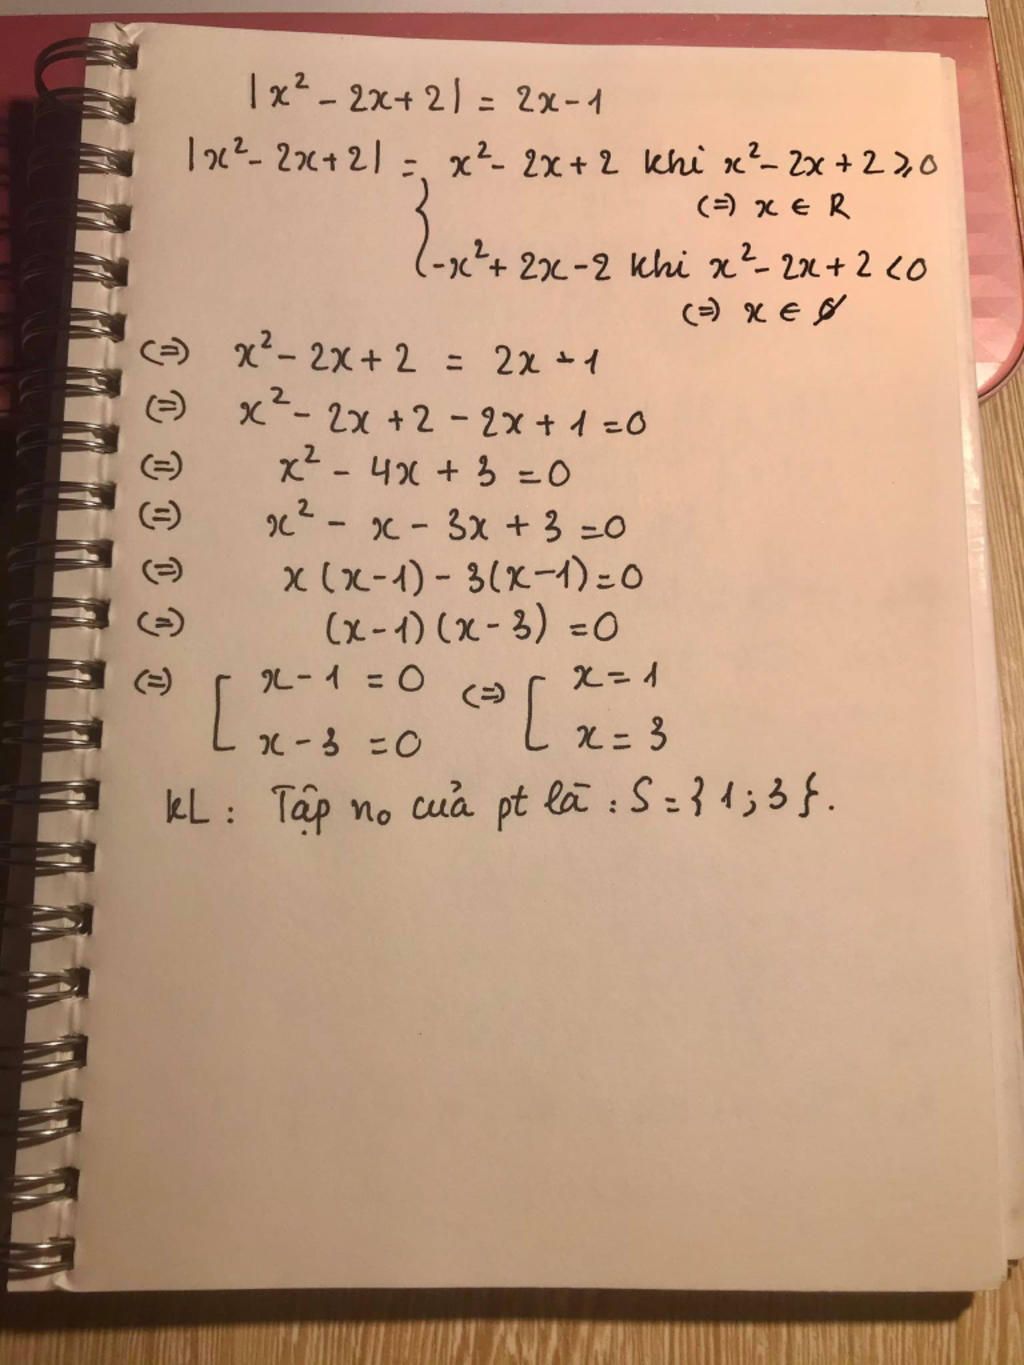 |x² - 2x + 2| = 2x - 1
|x² - 2x + 2| = { x² - 2x + 2 khi x² - 2x + 2 ⩾ 0
(=) x ∈ R
-x² + 2x - 2 khi x² - 2x + 2 < 0
(=) x ∈ ∅
(=) x² - 2x + 2 = 2x - 1
(=) x² - 2x + 2 - 2x + 1 = 0
(=) x² - 4x + 3 = 0
(=) x² - x - 3x + 3 = 0
(=) x(x-1) - 3(x-1) = 0
(=) (x-1)(x-3) = 0
(=) [ x - 1 = 0 (=) [ x = 1
x - 3 = 0 x = 3
KL : Tập no của pt là : S = {1 ; 3}.